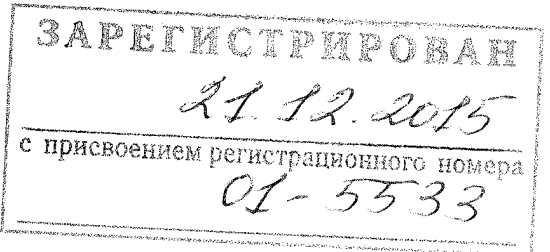 ЗАРЕГИСТРИРОВАН
21.12.2015
с присвоением регистрационного номера
01-5533